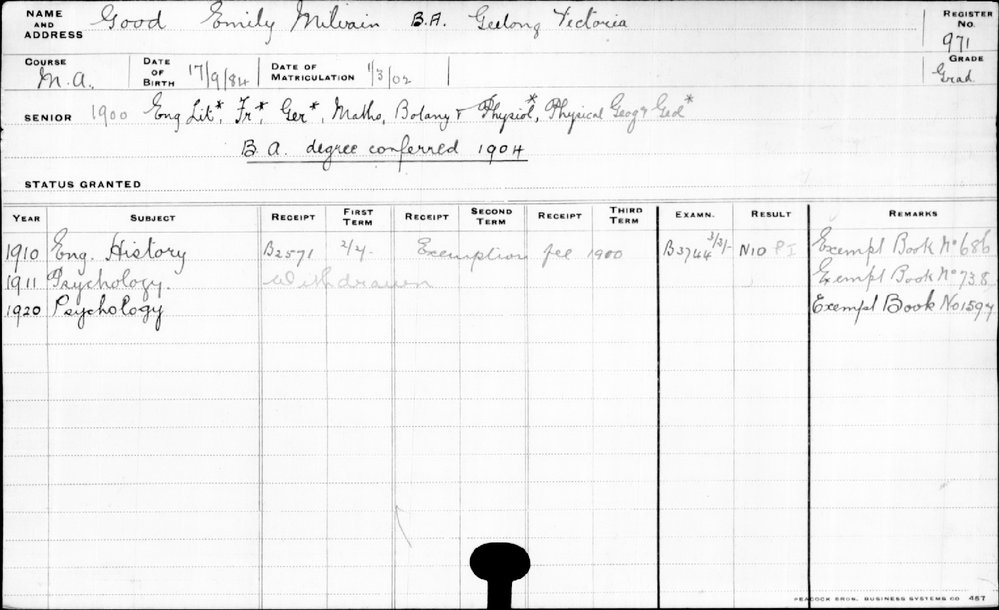 NAME AND ADDRESS Good Emily Milvain B.A. Geelong Victoria REGISTER No. 971
COURSE M.A. DATE OF BIRTH 17/9/84 DATE OF MATRICULATION 1/3/02 GRADE Grad
SENIOR 1900 Eng Lit*, Fr*, Ger*, Maths, Botany & Physiol*, Physical Geog & Geol*
B.A. degree conferred 1904
STATUS GRANTED
YEAR SUBJECT RECEIPT FIRST TERM RECEIPT SECOND TERM RECEIPT THIRD TERM EXAMN. RESULT REMARKS
1910 Eng. History B2571 2/4. Exemption fee 1900 B3744 3/3/- N10 PI Exempt Book No 686
1911 Psychology. Withdrawn Exempt Book No 738
1920 Psychology Exempt Book No 1594
PEACOCK BROS. BUSINESS SYSTEMS CO 457